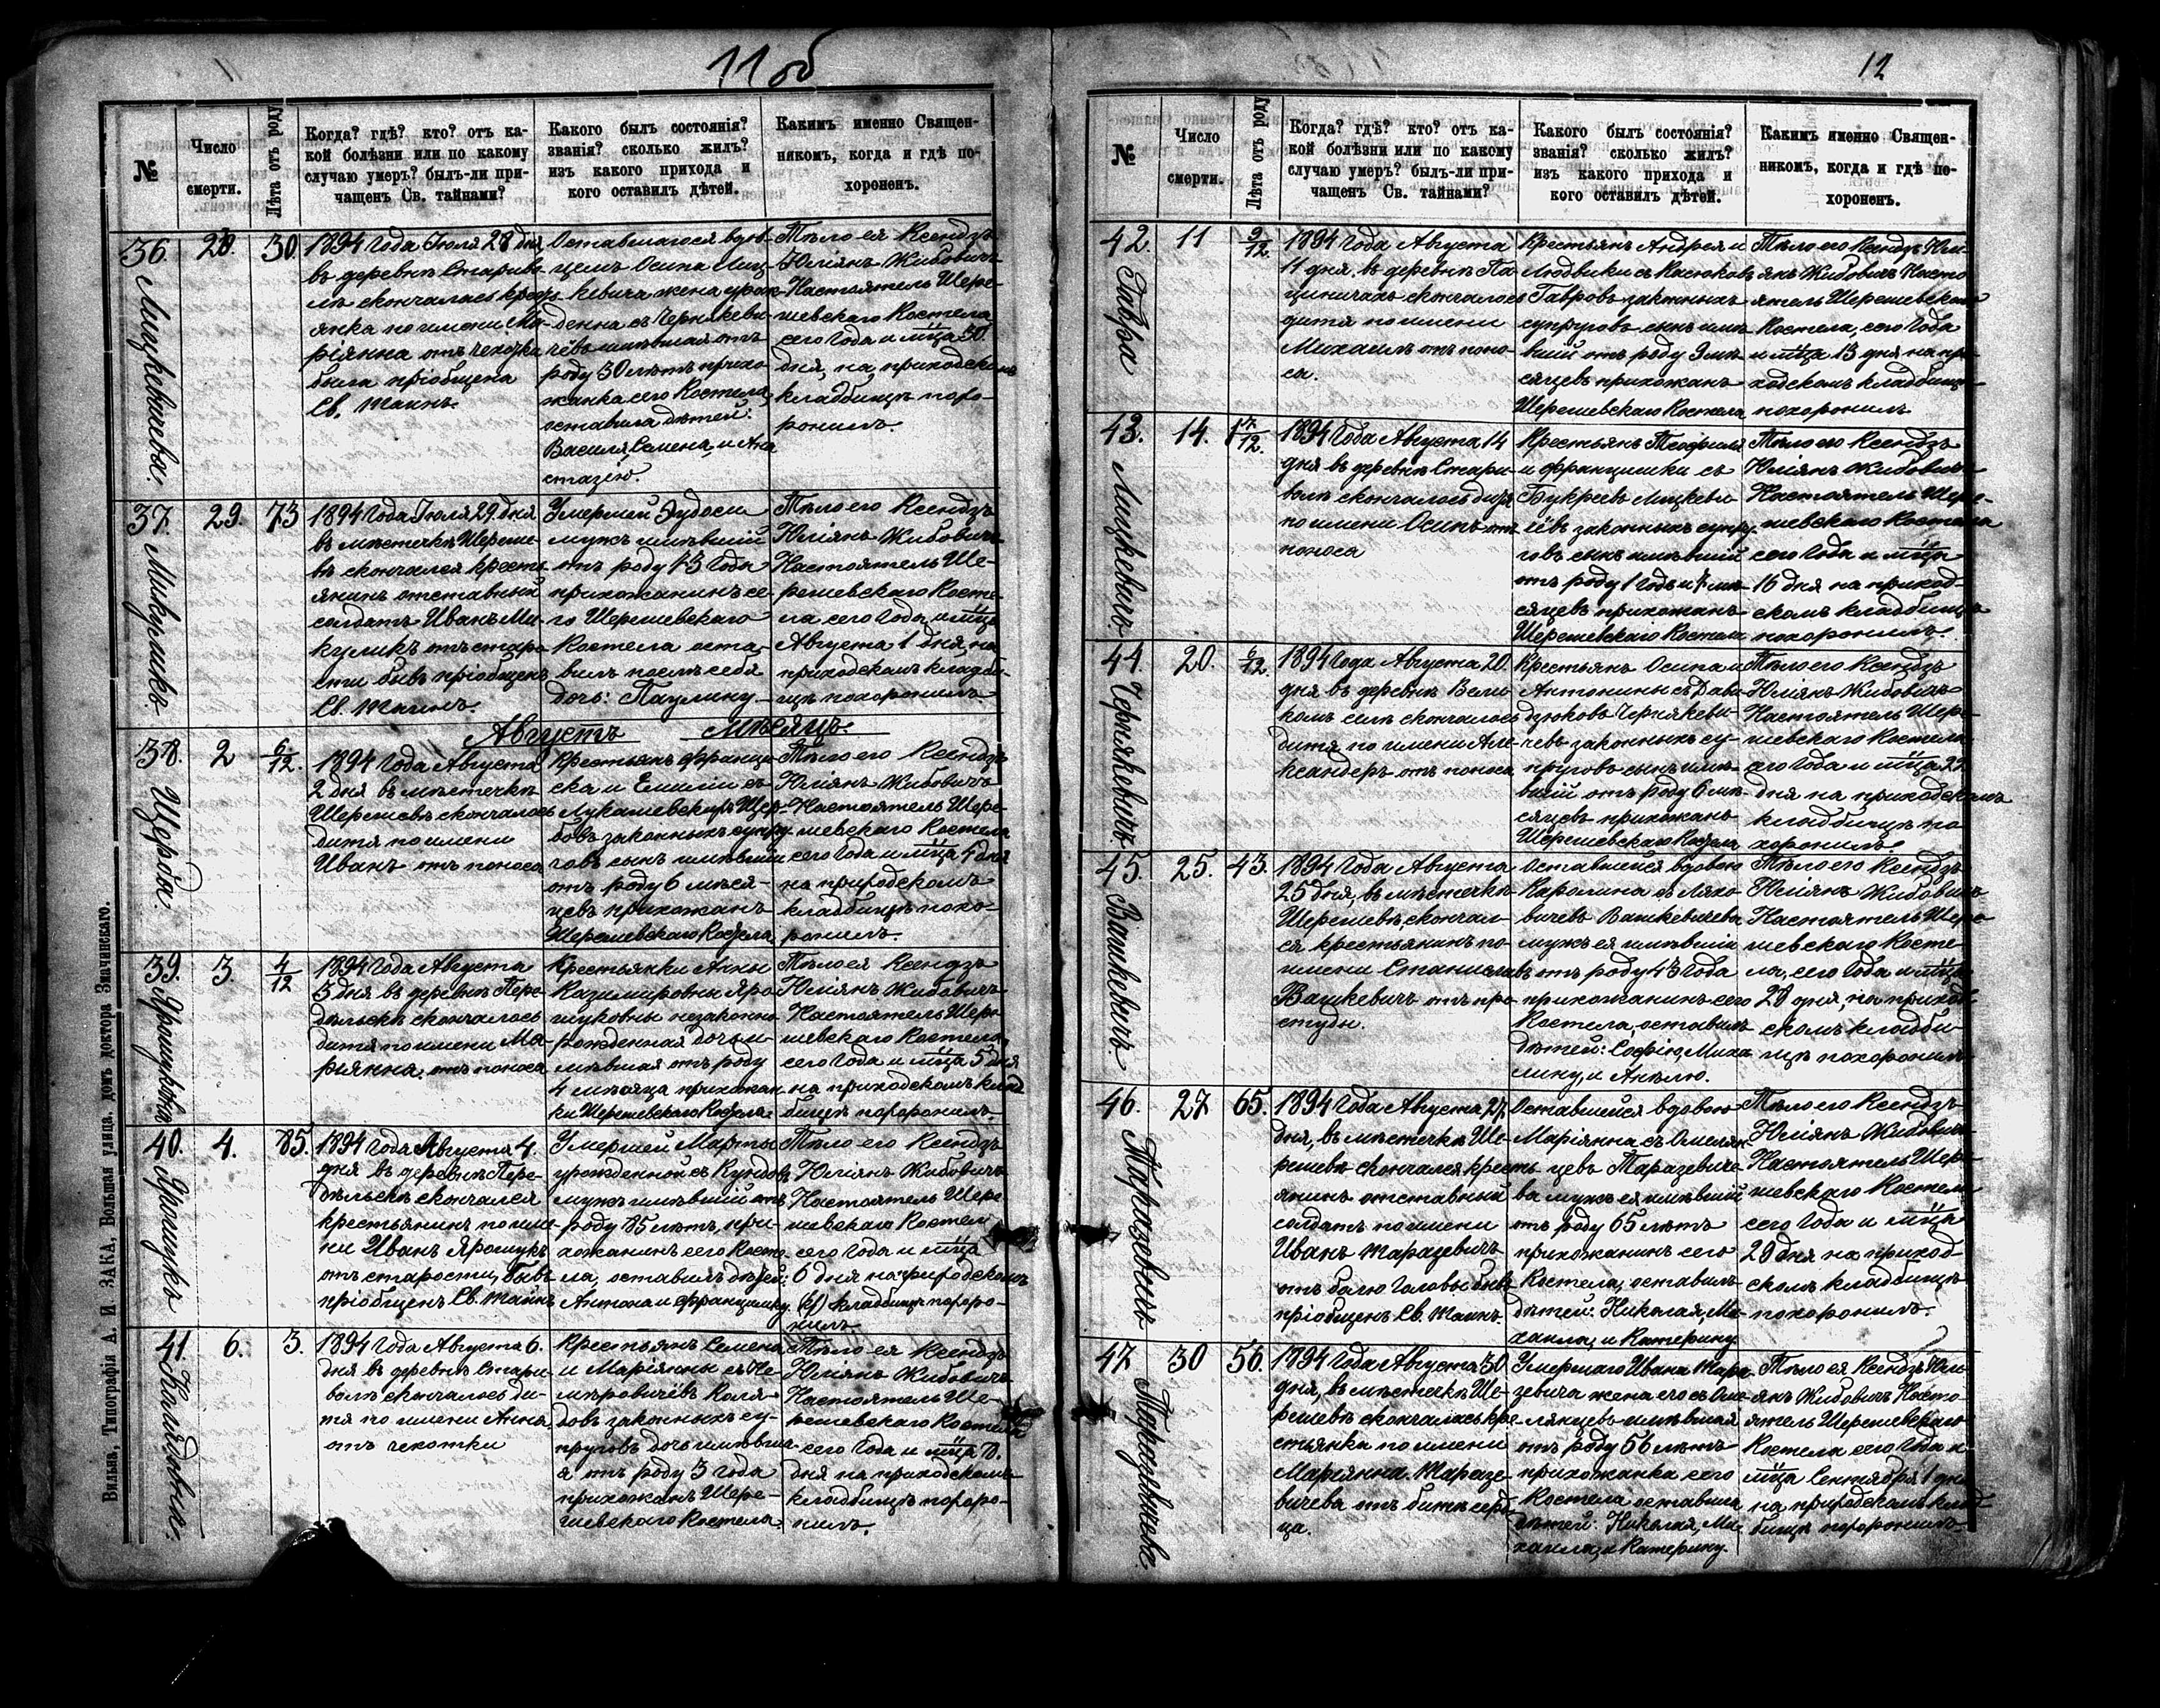 11 об
№
Число
смерти.
Лѣта отъ роду
Когда? гдѣ? кто? отъ ка-
кой болѣзни или по какому
случаю умеръ? былъ-ли при-
чащенъ Св. тайнами?
Какого былъ состоянія?
званія? сколько жилъ?
изъ какого прихода и
кого оставилъ дѣтей.
Какимъ именно Священ-
никомъ, когда и гдѣ по-
хороненъ.
36.
30.
1894 Года Іюля 28 дня
въ деревнѣ
скончалась
янка по имени Ма-
ріянна отъ чехотки
была пріобщена
Св. Таинъ.
Оставшагося вдов-
цемъ Осипа Миц-
кевича жена урож-
денна съ Чернякеви-
чёвъ имѣвшая отъ
роду 30 лѣтъ прихо-
жанка сего Костела,
оставила дѣтей:
Василія, Семена, и Ана
стазію.
Тѣло ея Ксендзъ
Юліянъ Жибовичъ
Настоятель Шере-
шевскаго Костела
сего Года и мца 30.
дня, на приходскомъ
кладбищѣ похо-
ронилъ.
37.
Микуликъ.
29.
73
1894 Года Іюля 29. дня
въ мѣстечкѣ Шереше-
вѣ скончался кресть
янинъ отставный
солдатъ Иванъ Ми-
куликъ отъ старо-
сти бывъ пріобщенъ
Св. Таинъ.
Умершей
мужъ имѣвшій
отъ роду 73 Года
прихожанинъ се-
го Шерешевскаго
Костела оста-
вилъ послѣ себя
дочь: Паулину
Тѣло его Ксендзъ
Юліянъ Жибовичъ
Настоятель Ше-
решевскаго Косте-
ла сего Года, и мца
Августа 1 дня, на
приходскомъ кладби-
щѣ похоронилъ.
Августъ Мѣсяцъ.
38.
Щерба.
2
6/12.
1894 Года Августа
2 дня въ мѣстечкѣ
Шерешевѣ скончалось
дитя по имени
Иванъ отъ поноса
Крестьянъ Францы-
ска и Емиліи съ
Лукашевскихъ Щер-
бовъ законныхъ супру-
говъ сынъ имѣвшій
отъ роду 6 мѣся-
цевъ прихожанъ
Шерешевскаго Костела
Тѣло его Ксендзъ
Юліянъ Жибовичъ
Настоятель Шере-
шевскаго Костела
сего Года и мца 4 дня
на приходскомъ
кладбищѣ похо-
ронилъ.
39.
3.
4/12
1894 Года Августа
3 дня въ деревнѣ Пере-
дѣльскѣ скончалось
дитя по имени Ма-
рьянна, отъ поноса
Крестьянки Анны
Казимировны Яро-
шуковны незаконно-
рожденная дочь и-
мѣвшая отъ роду
4 мѣсяца прихожан
ки Шерешевскаго Костела.
Тѣло ея Ксендзъ
Юліянъ Жибовичъ
Настоятель Шере-
шевскаго Костела,
сего Года и мца 5 дня
на приходскомъ клад
бищѣ похоронилъ.
40.
Ярошукъ
4.
85.
1894 года Августа 4.
дня въ деревнѣ Пере-
дѣльскѣ скончался
крестьянинъ по име-
ни Иванъ Ярошукъ
отъ старости, бывъ
пріобщенъ Св. Таинъ
Умершей Марты
урожденной съ
мужъ имѣвшій отъ
роду 85 лѣтъ, при-
хожанинъ сего Косте-
ла, оставилъ дѣтей:
Антона и Францишку.
Тѣло его Ксендзъ
Юліянъ Жибовичъ
Настоятель Шере-
шевскаго Костела
сего Года и мца
6 дня на приходскомъ
кладбищѣ похоро-
нилъ.
41.
6.
3.
1894 Года Августа 6.
дня въ деревнѣ Стари-
волѣ скончалось ди-
тя по имени Анна,
отъ чехотки
Крестьянъ Семена
и Маріянны съ Не-
мѣровичевъ Коля-
довъ законныхъ су-
пруговъ дочь имѣвша-
я отъ роду 3 года
прихожанъ Шере-
шевскаго Костела
Тѣло ея Ксендзъ
Юліянъ Жибовичъ
Настоятель Ше-
решевскаго Костела
сего Года и мца 8.
дня на приходскомъ
кладбищѣ похоро-
нилъ.
Вильна, Типографія А. И. ЗАКА, Большая улица, домъ доктора Змачинскаго.
12
№
Число
смерти.
Лѣта отъ роду
Когда? гдѣ? кто? отъ ка-
кой болѣзни или по какому
случаю умеръ? былъ-ли при-
чащенъ Св. тайнами?
Какого былъ состоянія?
званія? сколько жилъ?
изъ какого прихода и
кого оставилъ дѣтей.
Какимъ именно Священ-
никомъ, когда и гдѣ по-
хороненъ.
42.
Гавра
11
9/12.
1894 Года Августа
11 дня, въ деревнѣ Па-
циничахъ скончалось
дитя по имени
Михаилъ отъ поно-
са.
Крестьянъ Андрея и
Людвики съ Касюковъ
Гавровъ законныхъ
супруговъ сынъ имѣ-
вшій отъ роду 9 мѣ-
сяцевъ прихожанъ
Шерешевскаго Костела
Тѣло его Ксендзъ Юлі-
янъ Жибовичъ Насто-
ятель Шерешевскаго
Костела, сего Года
и мца 13 дня на при-
ходскомъ кладбищѣ
похоронилъ.
43.
Мицкевичъ
14.
1 7/12.
1894 Года Августа 14
дня въ деревнѣ Стари-
волѣ скончалось дитя
по имени Осипъ отъ
поноса
Крестьянъ Теофиля
и Францишки съ
Букреевъ Мицкеви-
чёвъ законныхъ супру-
говъ сынъ имѣвшій
отъ роду 1 Годъ и 7 мѣ-
сяцевъ прихожанъ
Шерешевскаго Костела
Тѣло его Ксендзъ
Юліянъ Жибовичъ
Настоятель Шере-
шевскаго Костела
сего Года и мца
16 дня на приход-
скомъ кладбищѣ
похоронилъ.
44.
Чернякевичъ.
20.
6/12.
1894 Года Августа 20.
дня въ деревнѣ Вели-
комъ селѣ скончалось
дитя по имени Але-
ксандеръ отъ поноса
Крестьянъ Осипа и
Антонины съ Дави-
дюковъ Чернякеви-
чевъ законныхъ су-
пруговъ сынъ имѣ-
вшій отъ роду 6 мѣ-
сяцевъ прихожанъ
Шерешевскаго Костела
Тѣло его Ксендзъ
Юліянъ Жибовичъ
Настоятель Шере-
шевскаго Костела
сего Года и мца 22
дня на приходскомъ
кладбищѣ по-
хоронилъ.
45.
Вашкевичъ
25.
43.
1894 Года Августа
25 дня, въ мѣстечкѣ
Шерешевѣ, скончал-
ся крестьянинъ по
имени Станиславъ
Вашкевичъ отъ про-
студы.
Оставшейся вдовою
Каролина съ Ляхо-
вичевъ Вашкевичева
мужъ ея имѣвшій
отъ роду 43 Года
прихожанинъ сего
Костела, оставилъ
дѣтей: Софію, Миха
лину, и Анѣлю.
Тѣло его Ксендзъ
Юліянъ Жибовичъ
Настоятель Шере-
шевскаго Косте-
ла, сего Года и мца
28 дня, на приход-
скомъ кладби-
щѣ похоронилъ.
46.
Таразевичъ
27
65.
1894 Года Августа 27.
дня, въ мѣстечкѣ Ше-
решевѣ скончался кресть
янинъ отставный
солдатъ по имени
Иванъ Таразевичъ
отъ болю Головы бывъ
пріобщенъ Св. Таинъ.
Оставшейся вдовою
Маріянна съ Омелян-
цевъ Таразевиче-
ва мужъ ея имѣвшій
отъ роду 65 лѣтъ
прихожанинъ сего
Костела, оставилъ
дѣтей: Николая, Ми-
хаила, и Катерину
Тѣло его Ксендзъ
Юліянъ Жибовичъ
Настоятель Шере-
шевскаго Костела
сего Года и мца
29 дня на приход-
скомъ кладбищѣ
похоронилъ.
47
Таразевичева.
30
56.
1894 Года Августа 30
дня, въ мѣстечкѣ Ше-
решевѣ скончалась кре-
стьянка по имени
Марьянна Таразе-
вичева отъ битя серд-
ца.
Умершаго Ивана Тара-
зевича жена его съ Оме-
лянцевъ имѣвшая
отъ роду 56 лѣтъ
прихожанка сего
Костела оставила
дѣтей: Николая, Ми-
хаила, и Катерину.
Тѣло ея Ксендзъ Юлі-
янъ Жибовичъ Насто-
ятель Шерешевскаго
Костела сего Года и
мца Сентября 1 дня
на приходскомъ клад-
бищѣ похоронилъ.